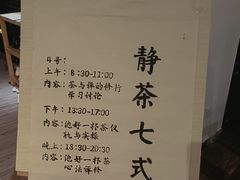 静茶七式
4号:
上午: 8:30-11:00
内容: 茶与禅的修行
学习讨论
下午: 13:30-17:00
内容: 泡好一杯茶仪
轨与实操
晚上: 18:30-20:30
内容: 泡好一杯茶
心法禅修